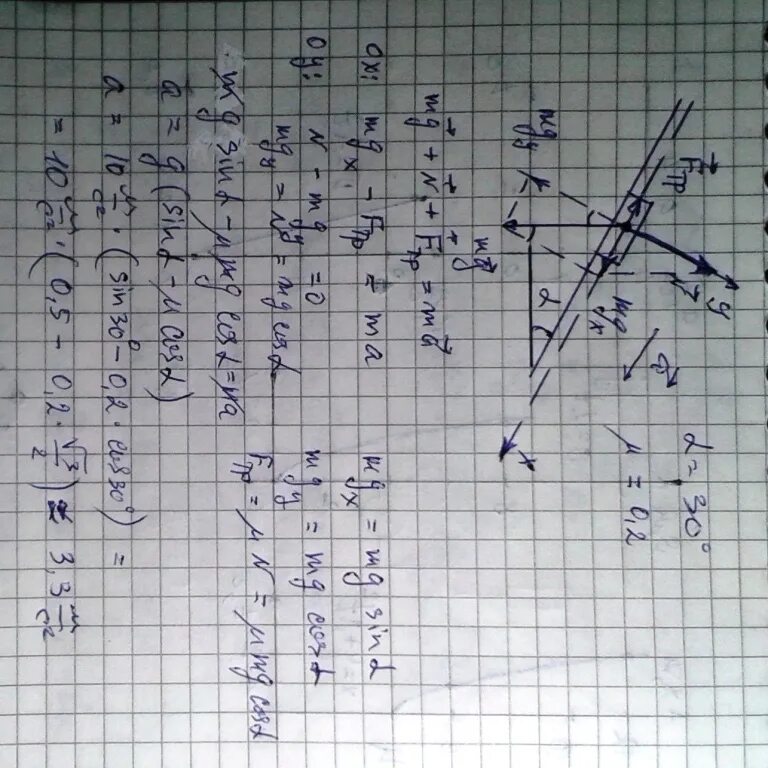 α = 30°
μ = 0,2
y
N⃗
F⃗тр
a⃗
mgx
mgy
α
mg⃗
x
mg⃗ + N⃗ + F⃗тр = ma⃗
ox: mgx - Fтр = ma
mgx = mg sinα
oy: N - mgy = 0
mgy = mg cosα
mgy = N = mg cosα
Fтр = μN = μmg cosα
mg sinα - μmg cosα = ma
a = g(sinα - μ cosα)
a = 10 м/с² · (sin30° - 0,2 · cos30°) =
= 10 м/с² · (0,5 - 0,2 · √3/2) ≈ 3,3 м/с²